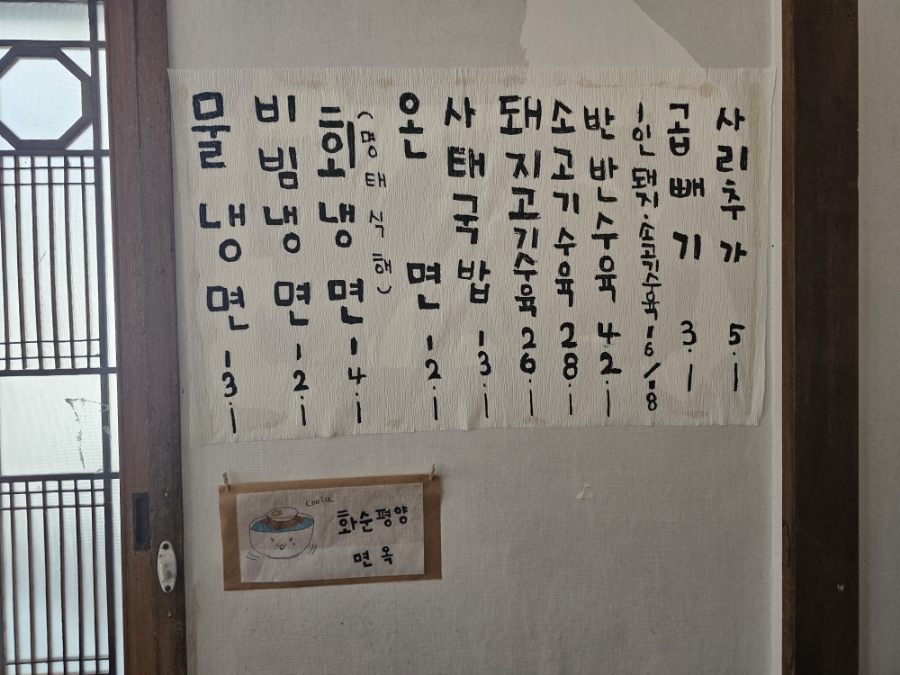 물냉면 13.-
비빔냉면 12.-
회냉면 14.-
(명태식해)
온면 12.-
사태국밥 13.-
돼지고기수육 26.-
소고기수육 28.-
반반수육 42.-
1인 돼지·소고기수육 16/18
곱빼기 3.-
사리추가 5.-
화순평양
면옥